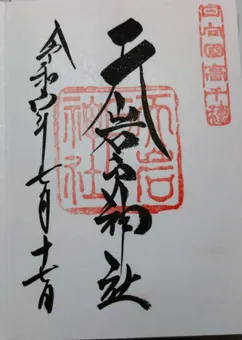 日向國高千穂
天岩戸神社
天岩戸神社
令和六年七月十七日